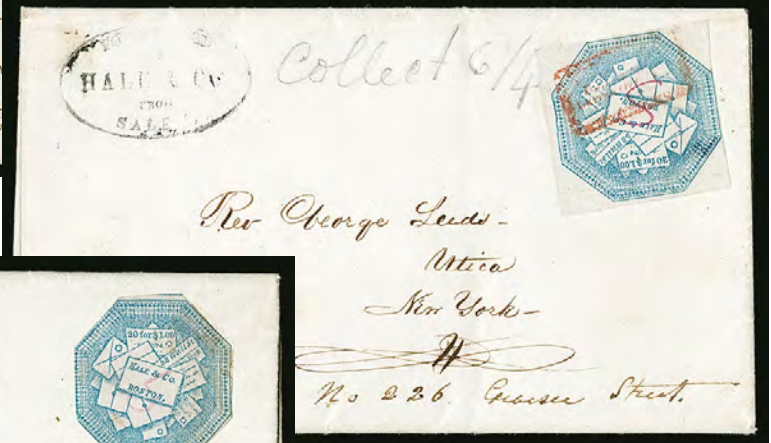 HALE & CO
FROM
SALE
Collect 6/4
20 for $1.00
HALE & Co.
BOSTON.
Rev George Leeds -
Utica
New York -
No 226 Genesee Street.
20 for $1.00
HALE & Co.
BOSTON.